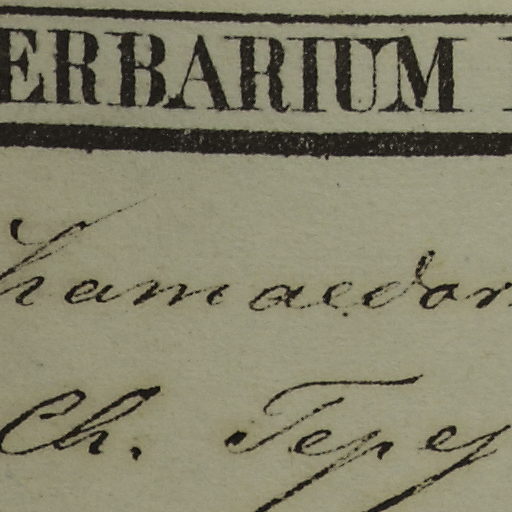 ERBARIUM
hamaedor
Ch. Tepej